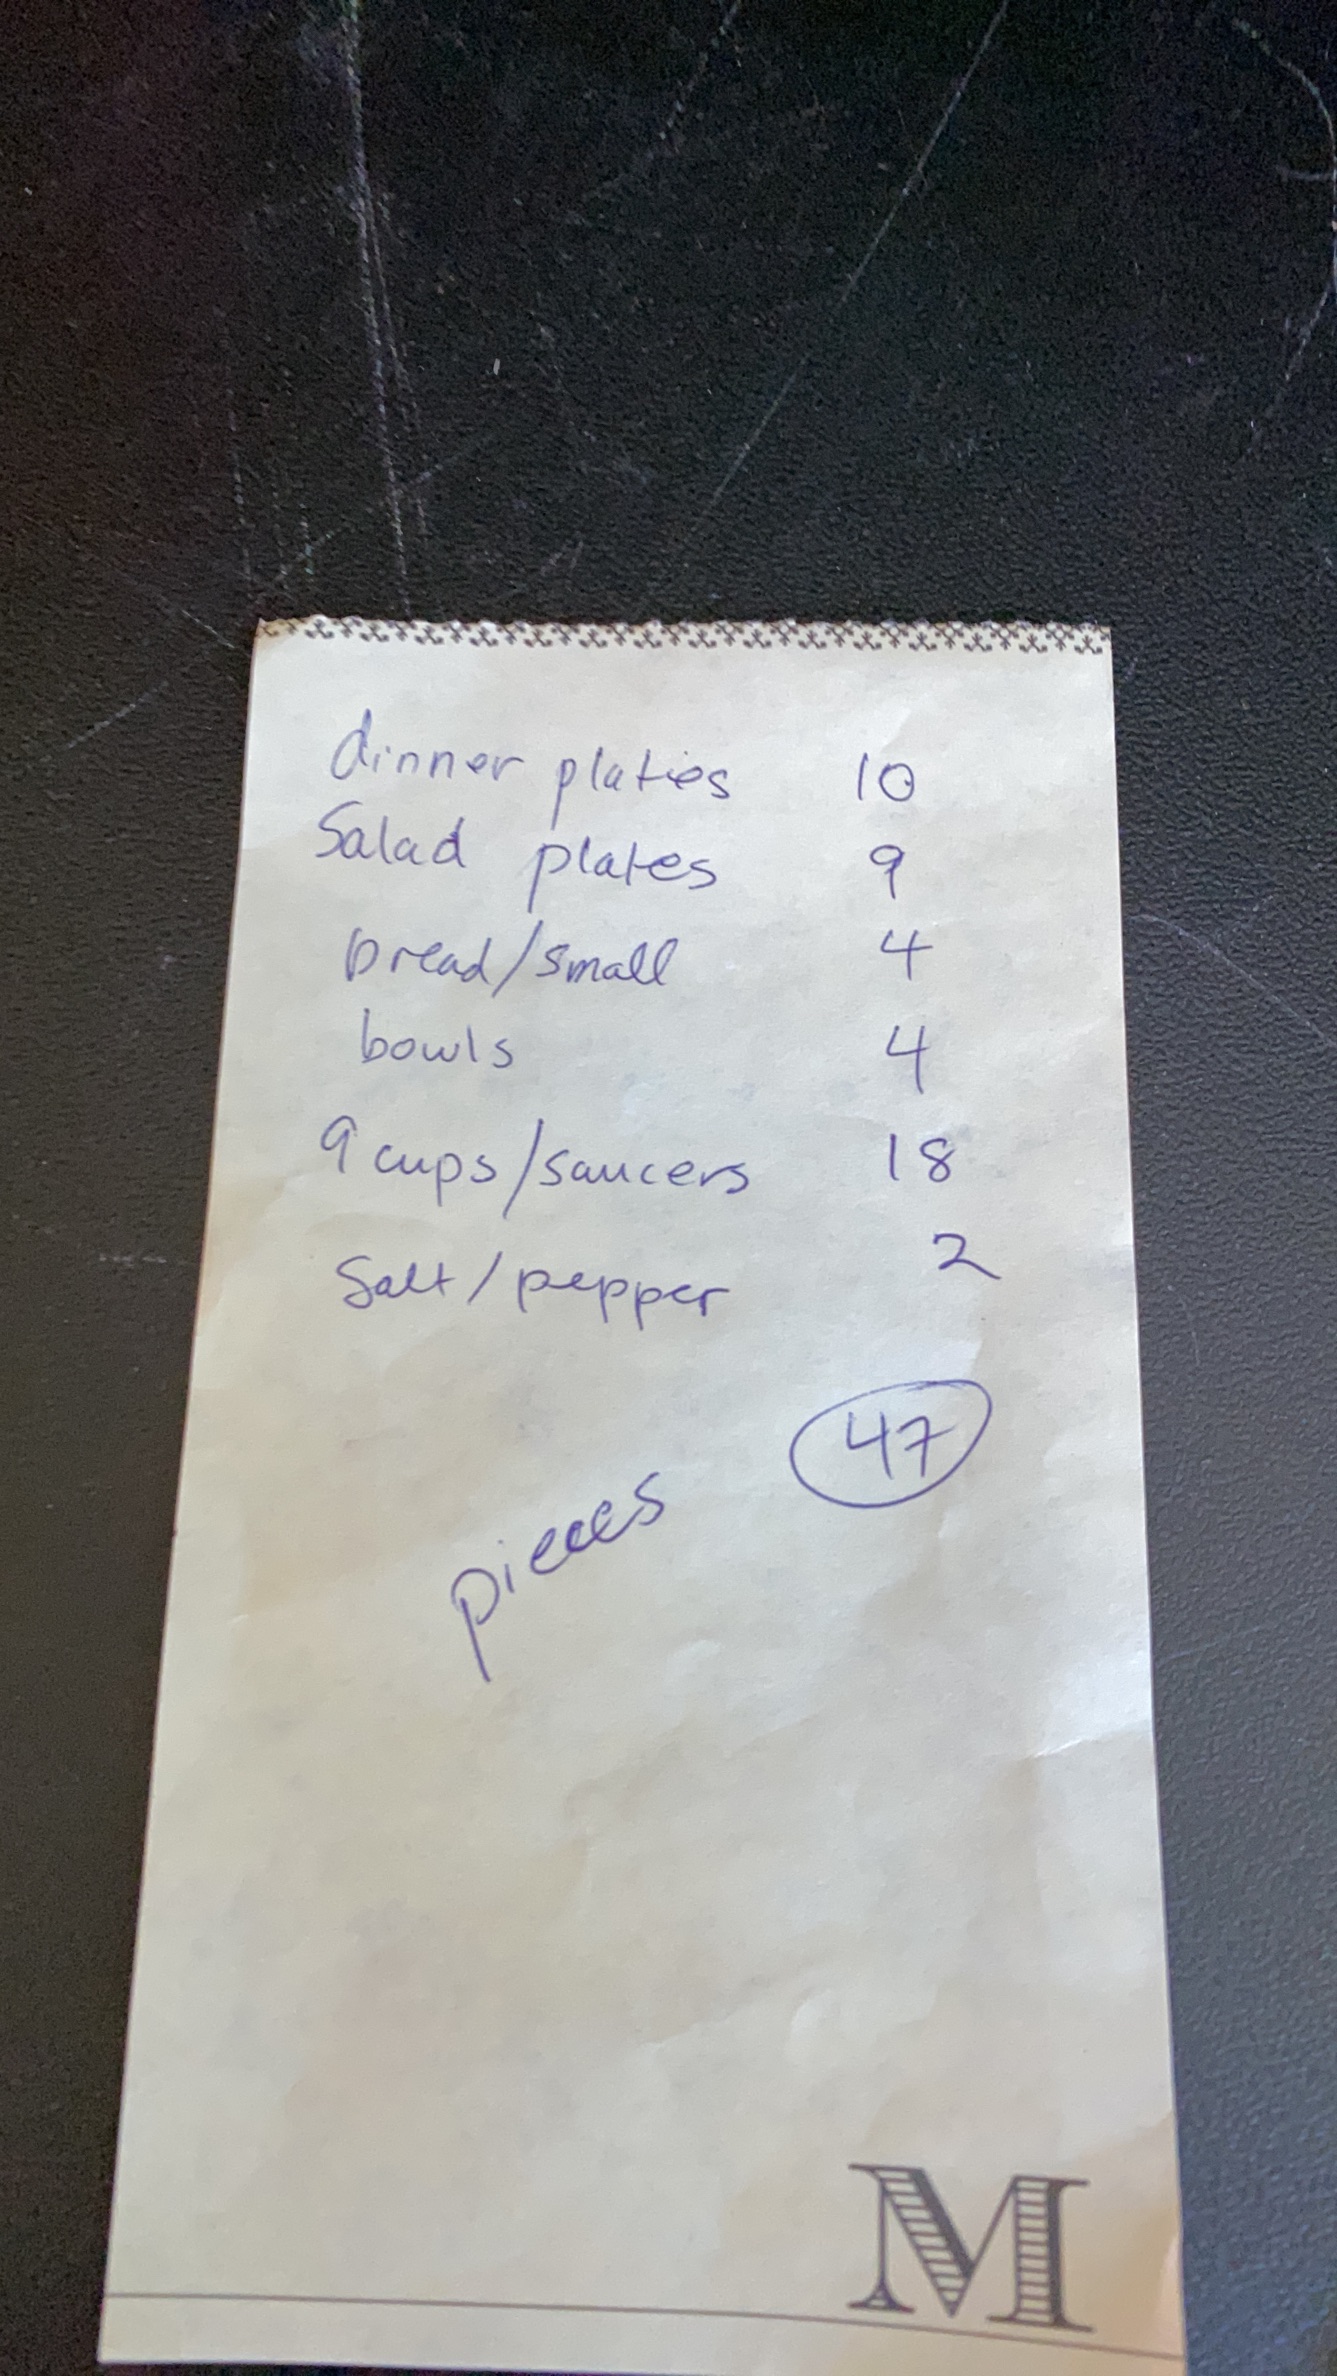 dinner plates 10
Salad plates 9
bread/small 4
bowls 4
9 cups/saucers 18
Salt/pepper 2
47
pieces
M